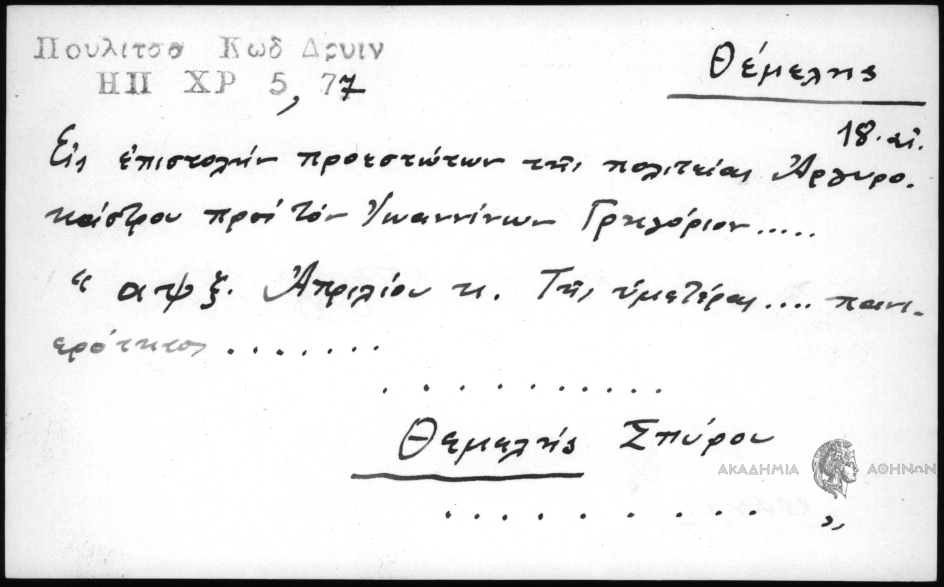 Πουλιτσα Κωδ Δρυιν
ΗΠ ΧΡ 5, 77
Θέμελης
18. αἰ.
Εἰς ἐπιστολὴν προεστώτων τῆς πολιτείας Ἀργυρο-
κάστρου πρὸς τὸν Ἰωαννίνων Γρηγόριον.....
“ αψξ. Ἀπριλίου κ. Τῆς ὑμετέρας .... πανι-
ερότητος .......
...........
Θεμελής Σπύρου
.......... „
ΑΚΑΔΗΜΙΑ ΑΘΗΝΩΝ